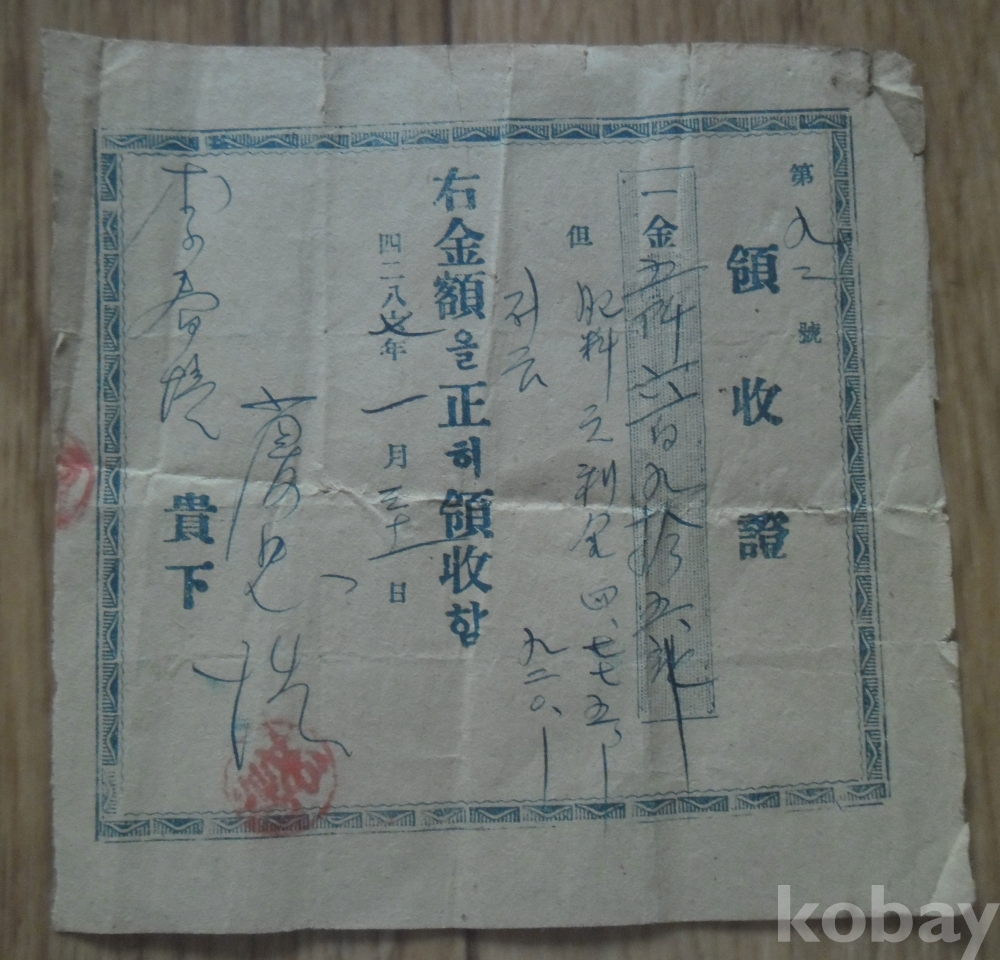 第九二號
領收證
一金五仟六百九拾五
但 肥料元利金 四、七七五
九二〇
右金額을正히領收함
四二八七年一月三十一日
李春
貴下
kobay